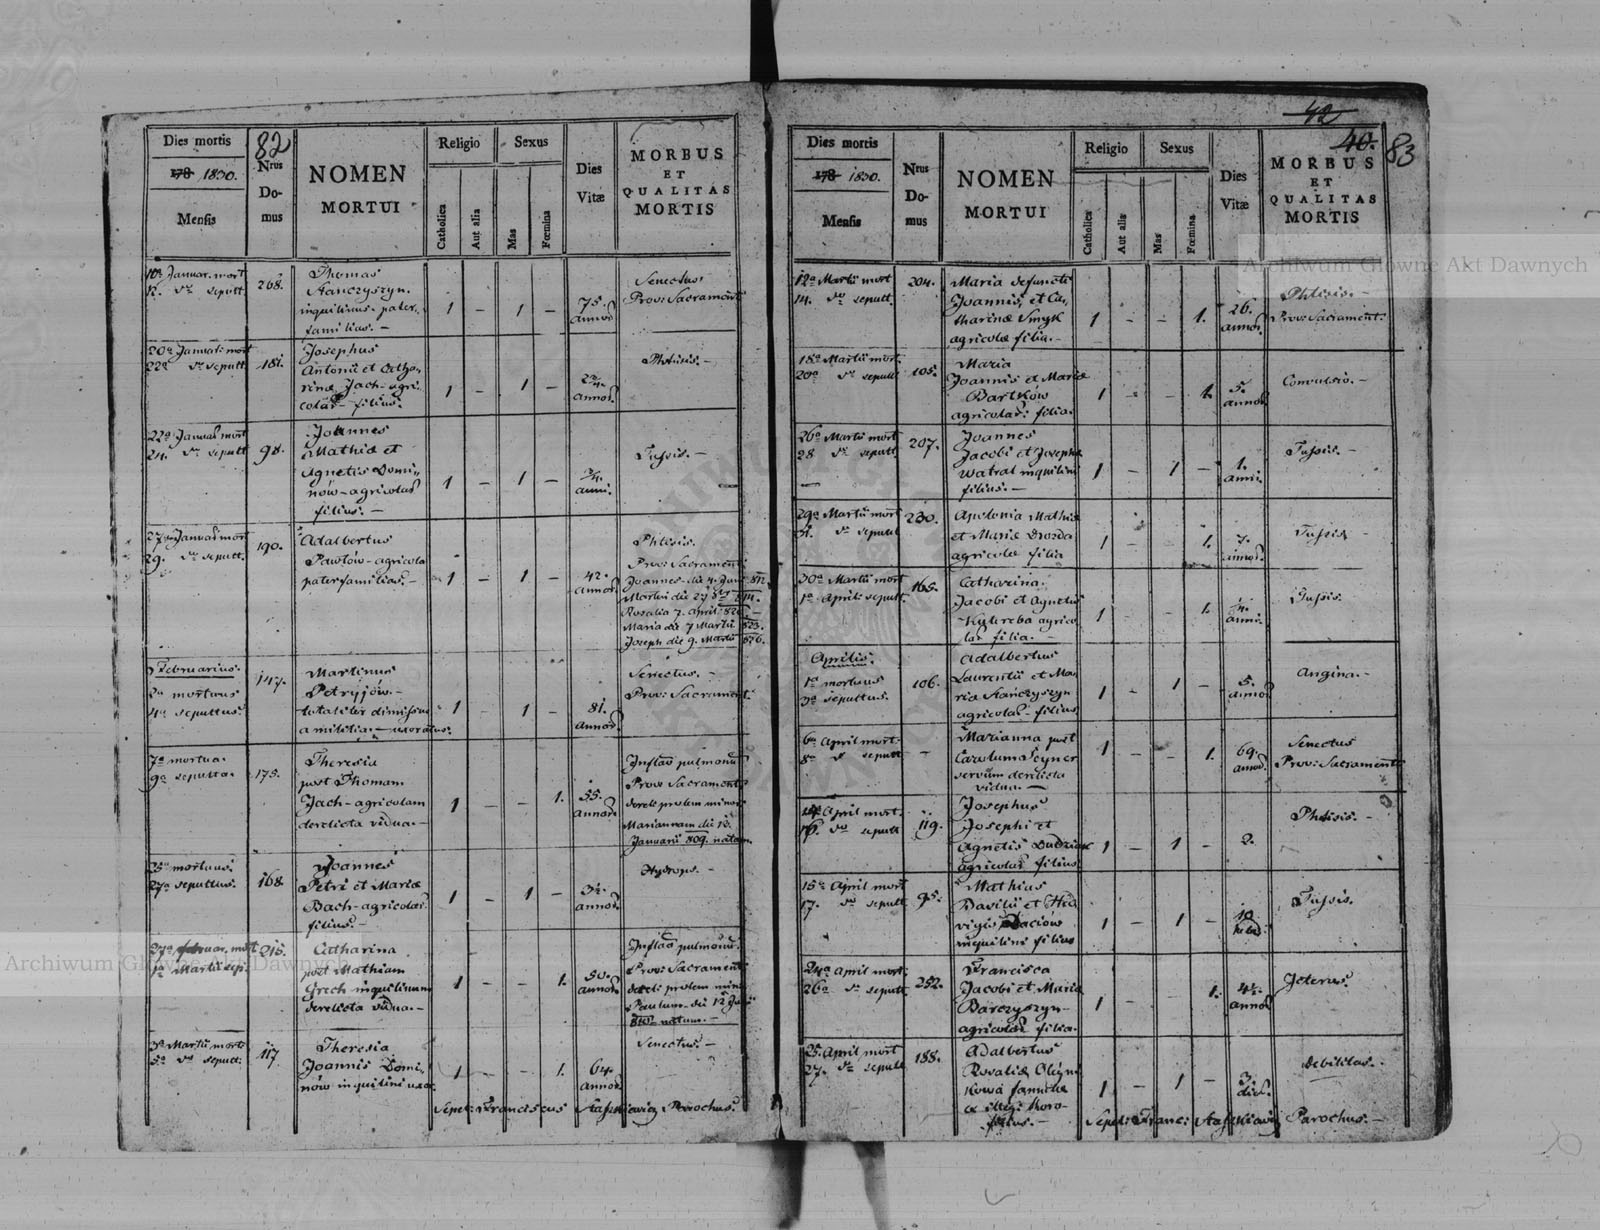 Dies mortis
178 1830.
Mensis
82
Nrus
Do-
mus
NOMEN
MORTUI
Religio
Catholica
Aut alia
Sexus
Mas
Fœmina
Dies
Vitæ
MORBUS
ET
QUALITAS
MORTIS
10a Januar. mort
12. do sepult.
268.
Thomas
Stanczyszyn.
inquilinus pater
familias. —
1 — 1 —
75.
annor
Senectus
Prov: Sacrament
20a Januar: mort
22a do sepult
181.
Josephus
Antonii et Catha-
rinæ Jach - agri-
colar - filius.
1 — 1 —
annor.
Phtisis. —
22a Januar mort
24. do sepult
98.
Joannes
Mathiæ et
Agnetis Domi-
nów - agricolar
filius. —
1 — 1 —
3/4.
anni.
Tussis. —
27a Januar mort
29. do sepult.
190.
Adalbertus
Pawłów - agricola
paterfamilias. —
1 — 1 —
42.
annor
Phtisis.
Prov: Sacrament
Joannes die 4. Juni 812.
Martin die 27 814.
Rosalia 7. April 820. —
Maria die 7 Martii 823.
Joseph die 9. Martii 826.
Februarius.
mortuus
4a sepultus.
147.
Martinus
Petryjów. —
totaliter dimissus
a militia. — uxoratus.
1 — 1 —
81.
annor
Senectus. —
Prov: Sacrament
7a mortua.
9a sepulta.
175.
Theresia
post Thomam
Jach - agricolam
derelicta vidua. —
1 — — 1.
55.
annor
Inflam pulmonum
Prov Sacrament
derelt prolem minor
Mariannam die 12.
Januarii 809. natam.
25a mortuus.
27a sepultus.
168.
Joannes
Petri et Mariæ
Bach - agricolar.
filius. —
1 — 1 —
3½.
annor.
Hydrops. —
27a februar. mort
1a Martii sep.
215.
Catharina
post Mathiam
Grech inquilinum
derelicta vidua. —
1 — — 1.
50.
annor
Inflam pulmonum.
Prov: Sacrament
derelt prolem minor
Paulum die 12
natum. —
3a Martii mort
5a do sepult.
117.
Theresia
Joannis Domi-
nów inquilini uxor.
1 — — 1.
64.
annor
Senectus. —
Sepel: Franciscus Parochus.
Dies mortis
178 1830.
Mensis
Nrus
Do-
mus
NOMEN
MORTUI
Religio
Catholica
Aut alia
Sexus
Mas
Fœmina
Dies
Vitæ
42
40.
83
MORBUS
ET
QUALITAS
MORTIS
12a Martii mort
14. do sepult.
204.
Maria defuncti
Joannis, et Ca-
tharinæ Smyk
agricolæ filia. —
1 — — 1.
26.
annor.
Phtisis. —
Prov: Sacrament.
18a Martii mort.
20a do sepult
105.
Maria
Joannis et Mariæ
Bartków
agricolar: filia.
1 — — 1.
5.
annor.
Convulsio. —
26a Martii mort
28 do sepult.
207.
Joannes
Jacobi et Josephæ
Watral inquilini
filius. —
1 — 1 —
1.
anni.
Tussis. —
29a Martii mort
31. do sepult
230.
Apolonia Mathiæ
et Mariæ Drozda
agricolæ filia
1 — — 1.
annor.
Tussis —
30a Martii mort
1a April: sepult.
165.
Catharina.
Jacobi et Agnetis
Kukreba agrico
lar filia. —
1 — — 1.
anni.
Tussis.
Aprilis.
1a mortuus
3a sepultus.
106.
Adalbertus
Laurentii et Ma
ria Stańczyszyn
agricolar - filius
1 — 1 —
5.
annor
Angina. —
6a April mort.
8a do sepult
—
Marianna post
Carolum
servum derelicta
vidua. —
1 — — 1.
69.
annor.
Senectus
Prov: Sacrament
14 April mort.
16. do sepult
119.
Josephus
Josephi et
Agnetis Dudziak
agricolar filius
1 — 1 —
2.
Phtisis. —
15a April mort
17. do sepult
95.
Mathias
Basilii et Hed
vigis Daciów
inquilini filius
1 — 1 —
10
hebd:
Tussis.
24a April mort.
26a do sepult
252.
Francisca
Jacobi et Mariæ
Barczyszyn —
agricolar filia.
1 — — 1.
4½.
annor
Jcterus.
25. April mort
27. do sepult
188.
Adalbertus
Rosaliæ Oleyni
kowa famulæ
filius. —
1 — 1 —
3.
dier.
debilitas.
Sepel: Franc: Parochus. —
Archiwum Główne Akt Dawnych
Archiwum Główne Akt Dawnych